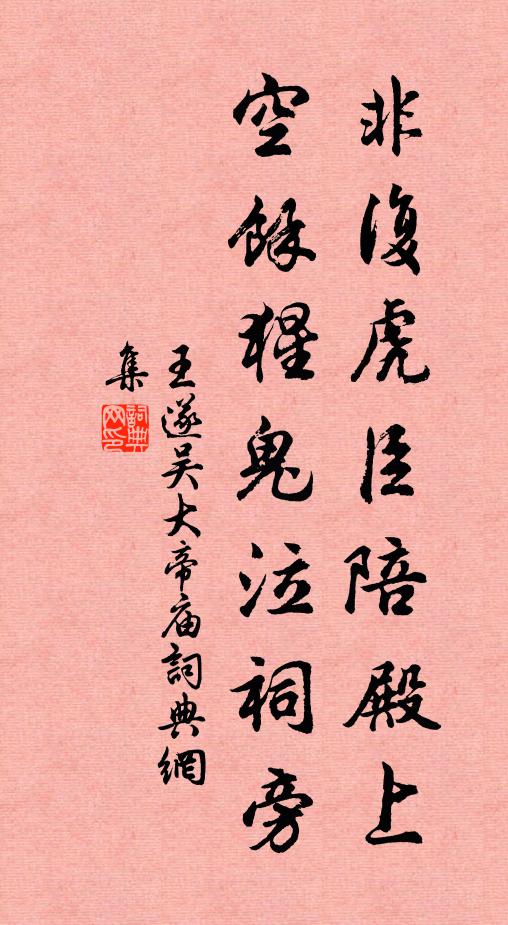 非復虎臣陪殿上
空餘猩鬼泣祠旁
王遂吴大帝庙詞典網
集
詞典
网印